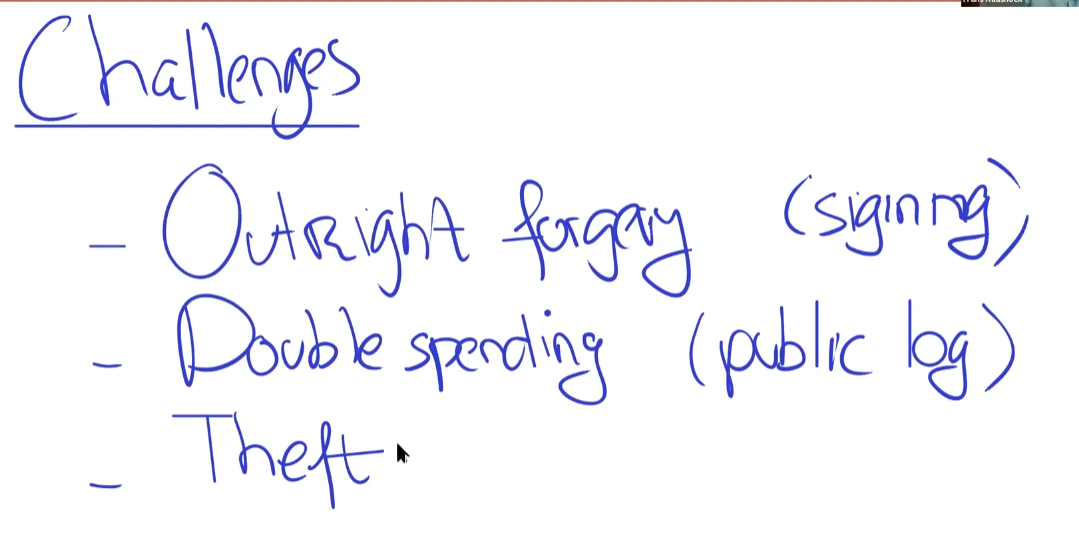 Challenges
- Outright forgery (signing)
- Double spending (public log)
- Theft